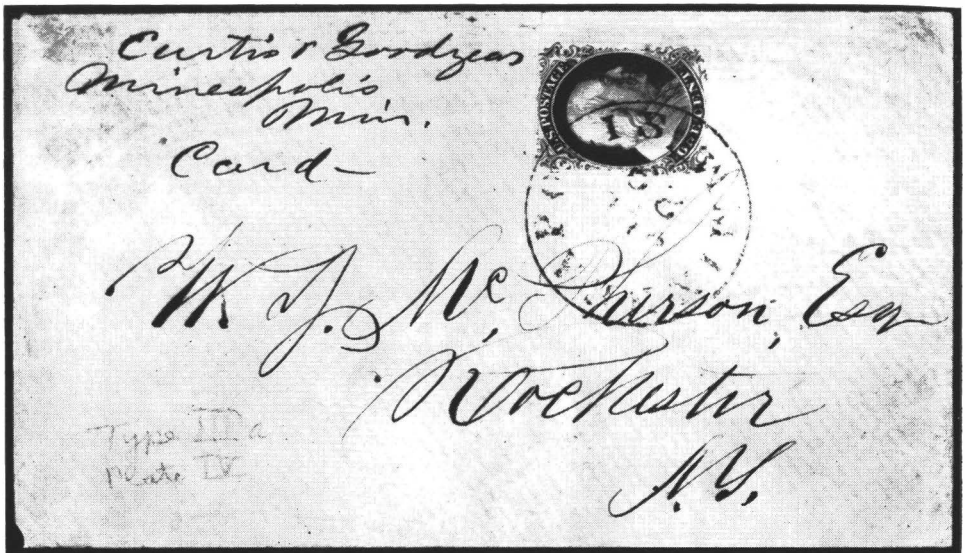 Curtis & Goodyear
Mineapolis
Min.
Card—
U.S. POSTAGE
W. Y. McPherson, Esq
Rochester
N.Y.
Type III a
Plate IV